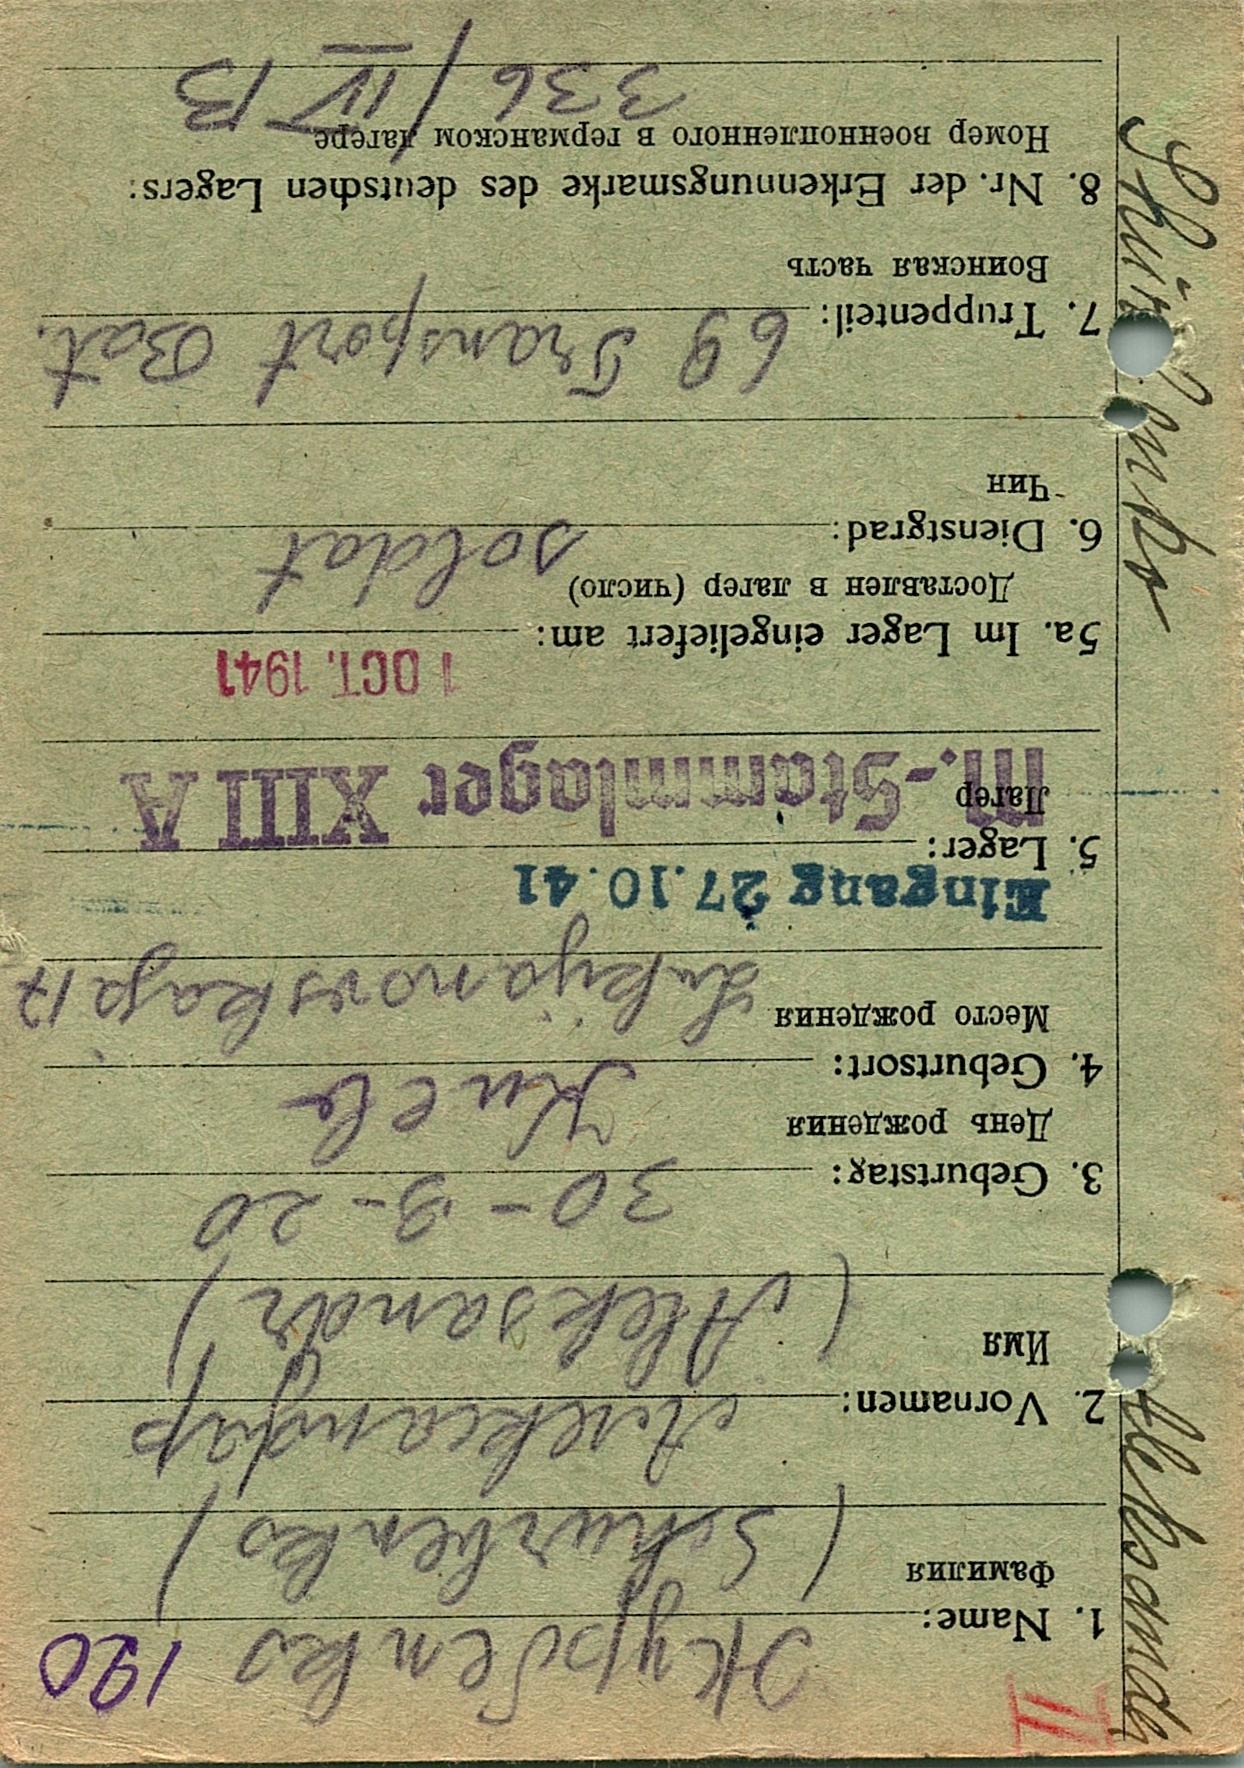 II
190
1. Name: Журбенко
Фамилия
(Schurbenko)
2. Vornamen: Александр
Имя
(Aleksandr)
3. Geburtstag: 30-9-20
День рождения
4. Geburtsort: Киев
Место рождения
Lukijanowskaja 17
Eingang 27.10.41
5. Lager:
Лагер
M.-Stammlager XIII A
1 OCT. 1941
5a. Im Lager eingeliefert am:
Доставлен в лагер (число)
6. Dienstgrad: soldat
Чин
7. Truppenteil: 69 Transport Bat.
Воинская часть
8. Nr. der Erkennungsmarke des deutschen Lagers:
Номер военнопленного в германском лагере
336/IV B